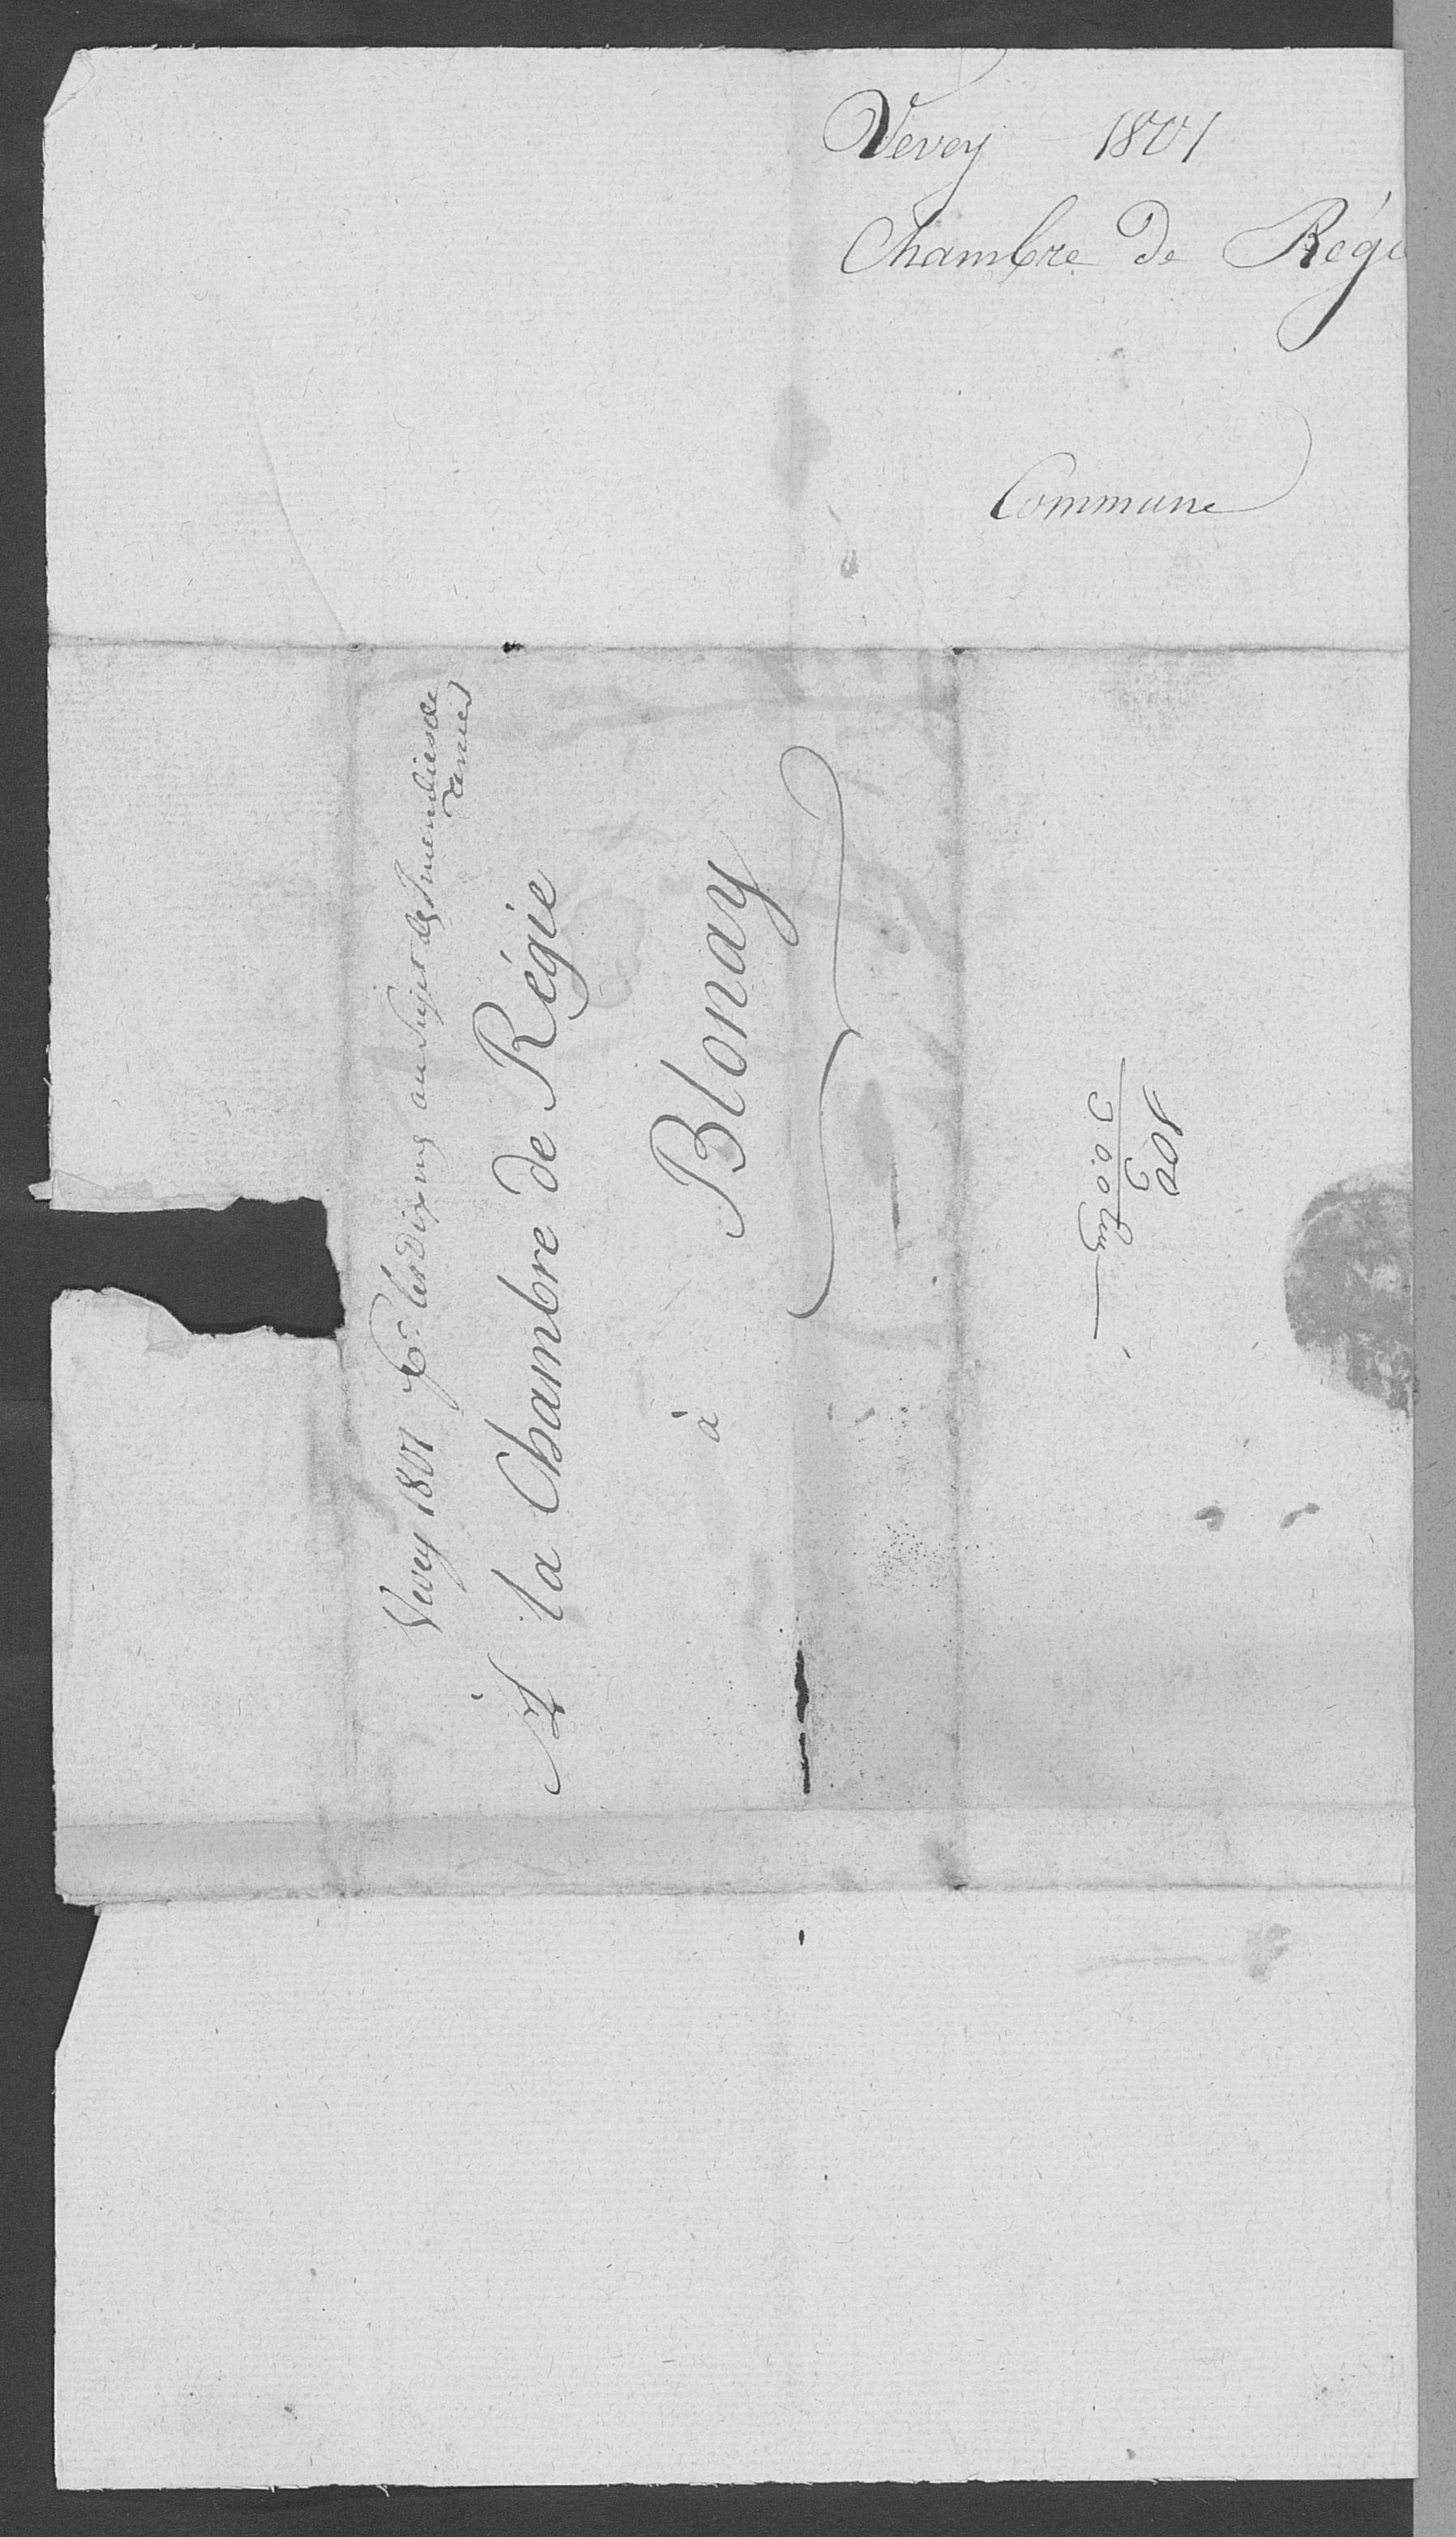 Vevey 1801
Chambre de Régie
Commune
Vevey 1801 les Dixmes au Sujet des Incendiés de
A la Chambre de Régie
à
Blonay
100
5
500